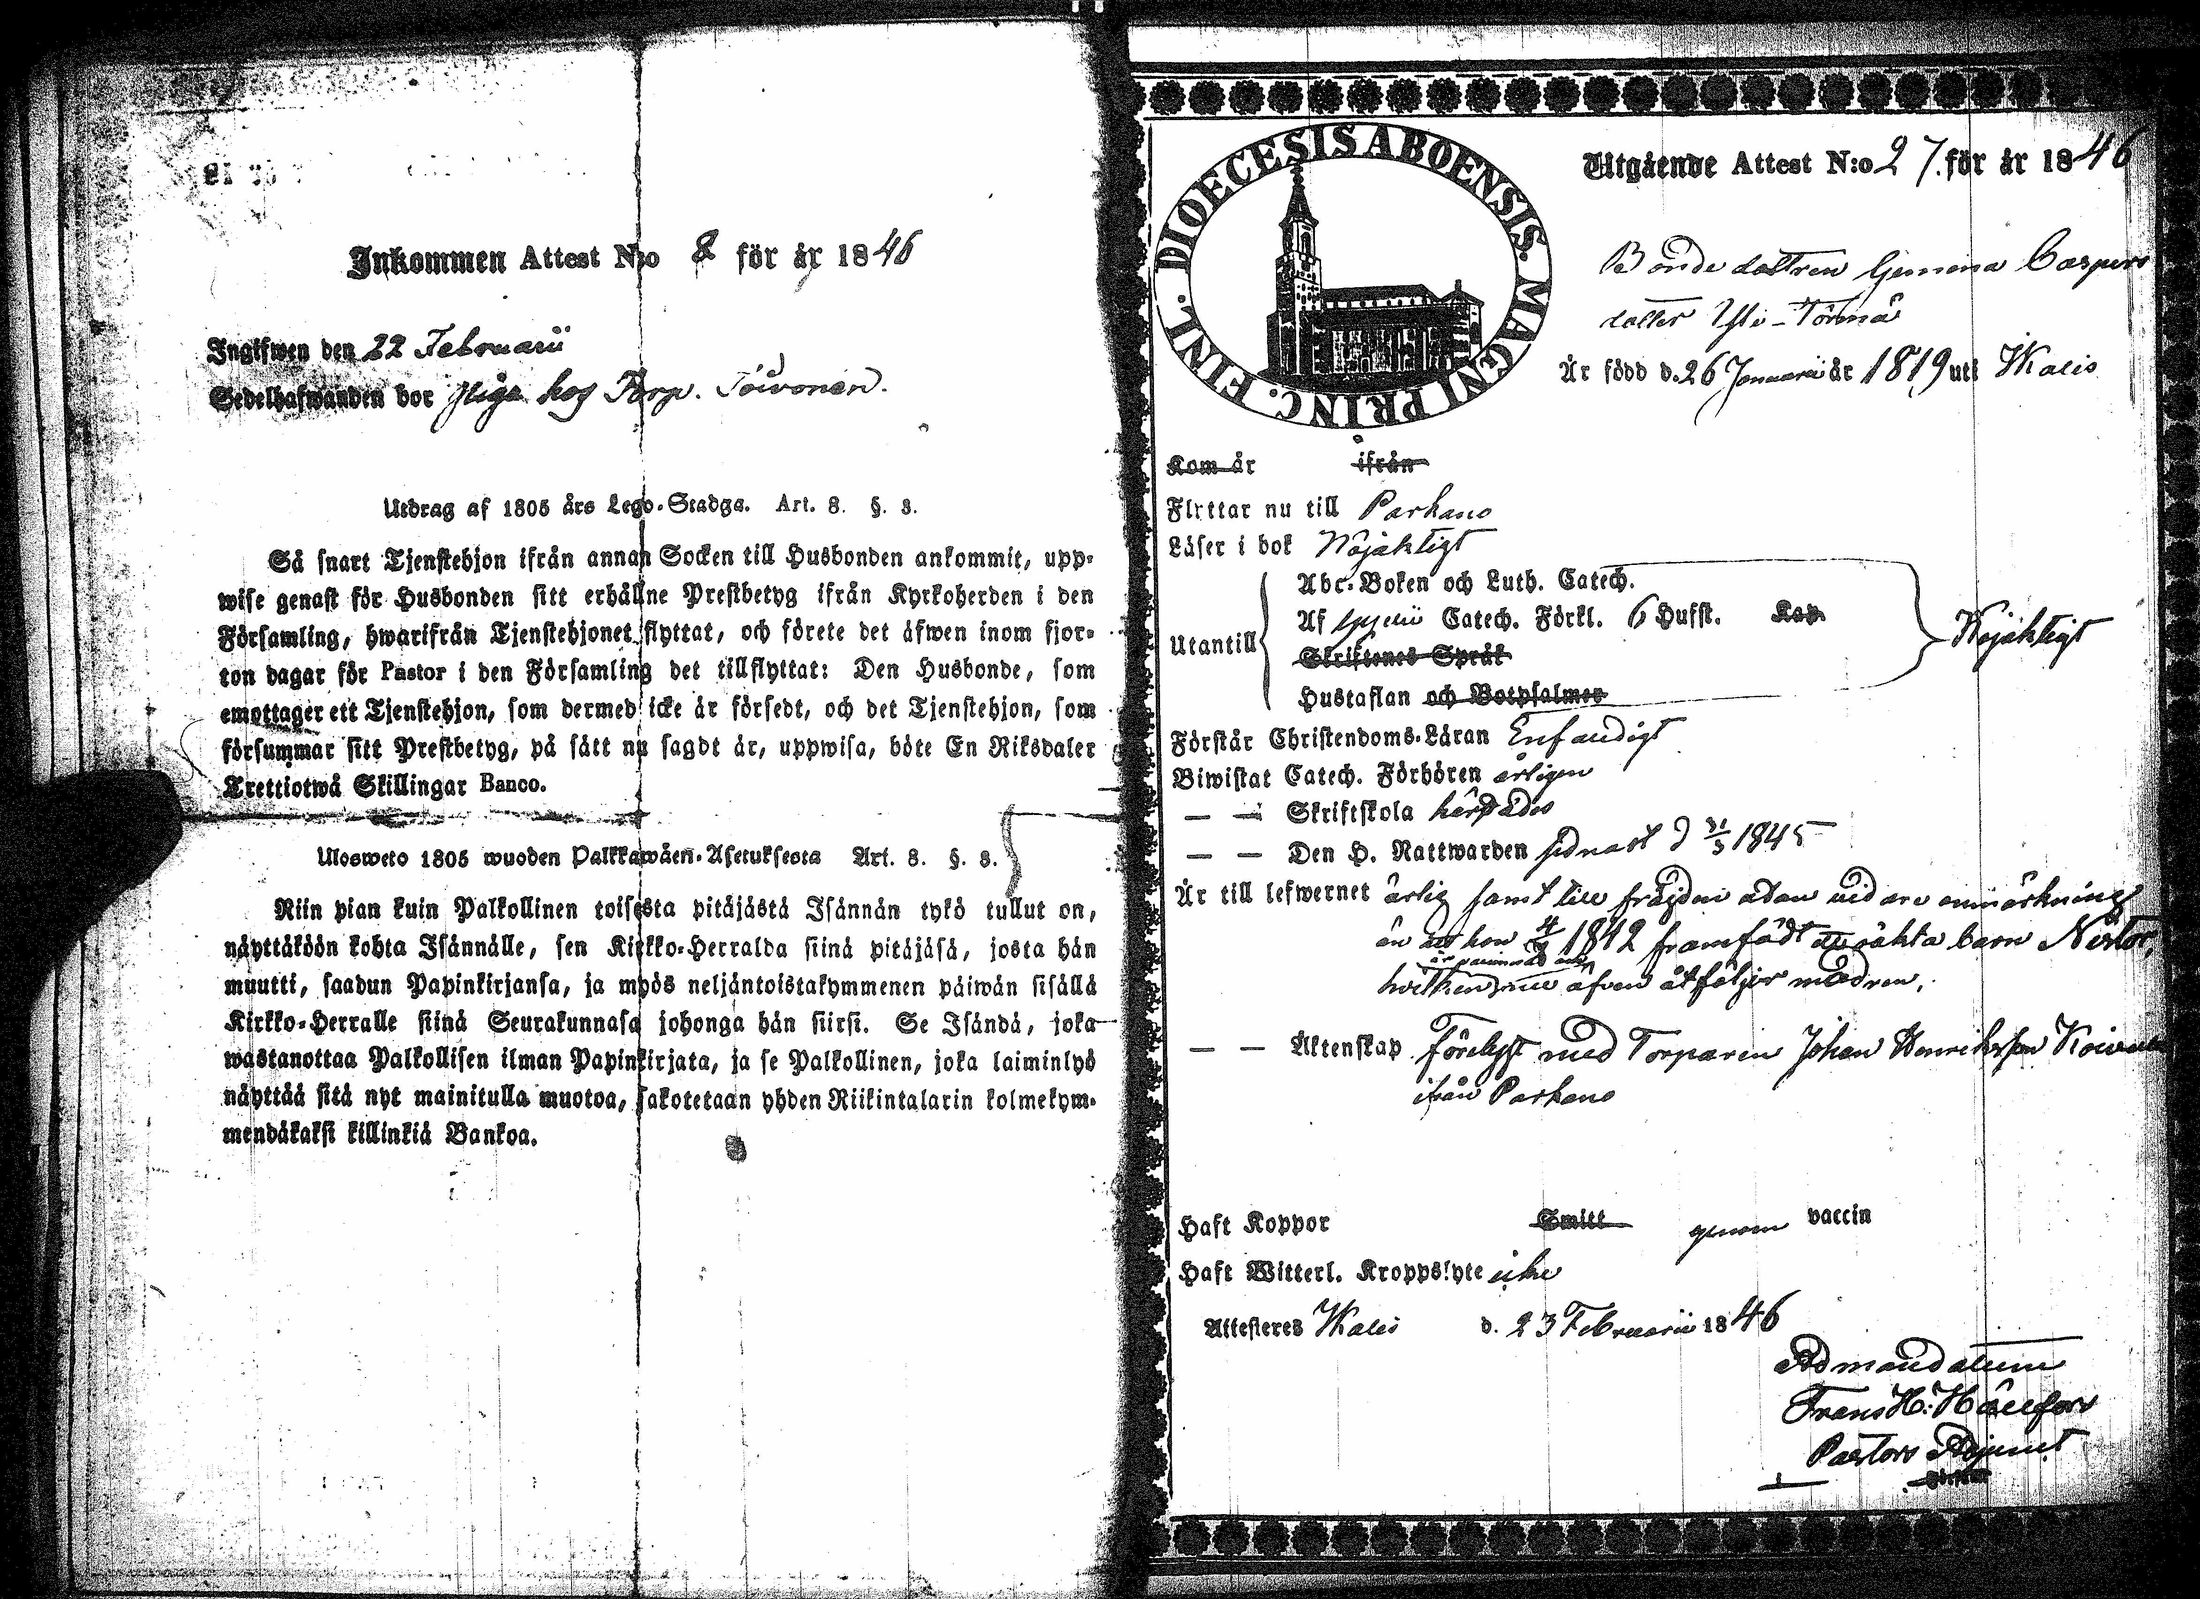 Inkommen Attest N:o 8 för år 1846
Ingifwen den 22 Februarii
Sedelhafwanden bor hos Torp. Toivonen.
Utdrag af 1805 års Lego-Stadga. Art. 8. §. 3.
Så snart Tjenstehjon ifrån annan Socken till Husbonden ankommit, upp-
wise genast för Husbonden sitt erhållne Prestbetyg ifrån Kyrkoherden i den
Församling, hwarifrån Tjenstehjonet flyttat, och förete det äfwen inom fjor-
ton dagar för Pastor i den Församling det tillflyttat: Den Husbonde, som
emottager ett Tjenstehjon, som dermed icke är försedt, och det Tjenstehjon, som
försummar sitt Prestbetyg, på sätt nu sagdt är, uppwisa, böte En Riksdaler
Trettiotwå Skillingar Banco.
Ulosweto 1805 wuoden Palkkawäen-Asetuksesta Art. 8. §. 3.
Niin pian kuin Palkollinen toisesta pitäjästä Isännän tykö tullut on,
näyttäköön kohta Isännälle, sen Kirkko-Herralda siinä pitäjäsä, josta hän
muutti, saadun Papinkirjansa, ja myös neljäntoistakymmenen päiwän sisällä
Kirkko-Herralle siinä Seurakunnasa johonga hän siirsi. Se Isändä, joka
wastanottaa Palkollisen ilman Papinkirjata, ja se Palkollinen, joka laiminlyö
näyttää sitä nyt mainitulla muotoa, sakotetaan yhden Riikintalarin kolmekym-
mendäkaksi killinkiä Bankoa.
DIOECESIS ABOENSIS. MAGNI PRINC. FINL.
Utgående Attest N:o 27. för år 1846
Bonde dottren Gemena Caspers
dotter Yli-Törmä
Är född d. 26 Januarii år 1819 uti Ikalis
Kom år ifrån
Flyttar nu till Parkano
Läser i bok Nöjaktigt
Utantill
Abc-Boken och Luth. Catech.
Af Catech. Förkl. 6 Hufst. Kap.
Skriftenes Språk
Hustaflan och Botpsalmer
Nöjaktigt
Förstår Christendoms-Läran Enfaudigt
Biwistat Catech. Förhören årligen
— — Skriftskola härstädes
— — Den H. Nattwarden sednast d 31/5 1845
Är till lefwernet ärlig samt till frägden utan vidare anmärkning
än att hon 1842 framfödt oäkta barn Nestor,
är vaccinerad och
hvilken nu äfven åtföljer modren.
— — Äktenskap Förelyst med Torparen Johan Henriksson Koivunen
ifrån Parkano
Haft Koppor Smitt genom vaccin
Haft Witterl. Kroppslyte icke
Attesteres Ikalis d. 23 Februarii 1846
Ad mandatum
Frans H: Hällfors
Pastors Adjunct